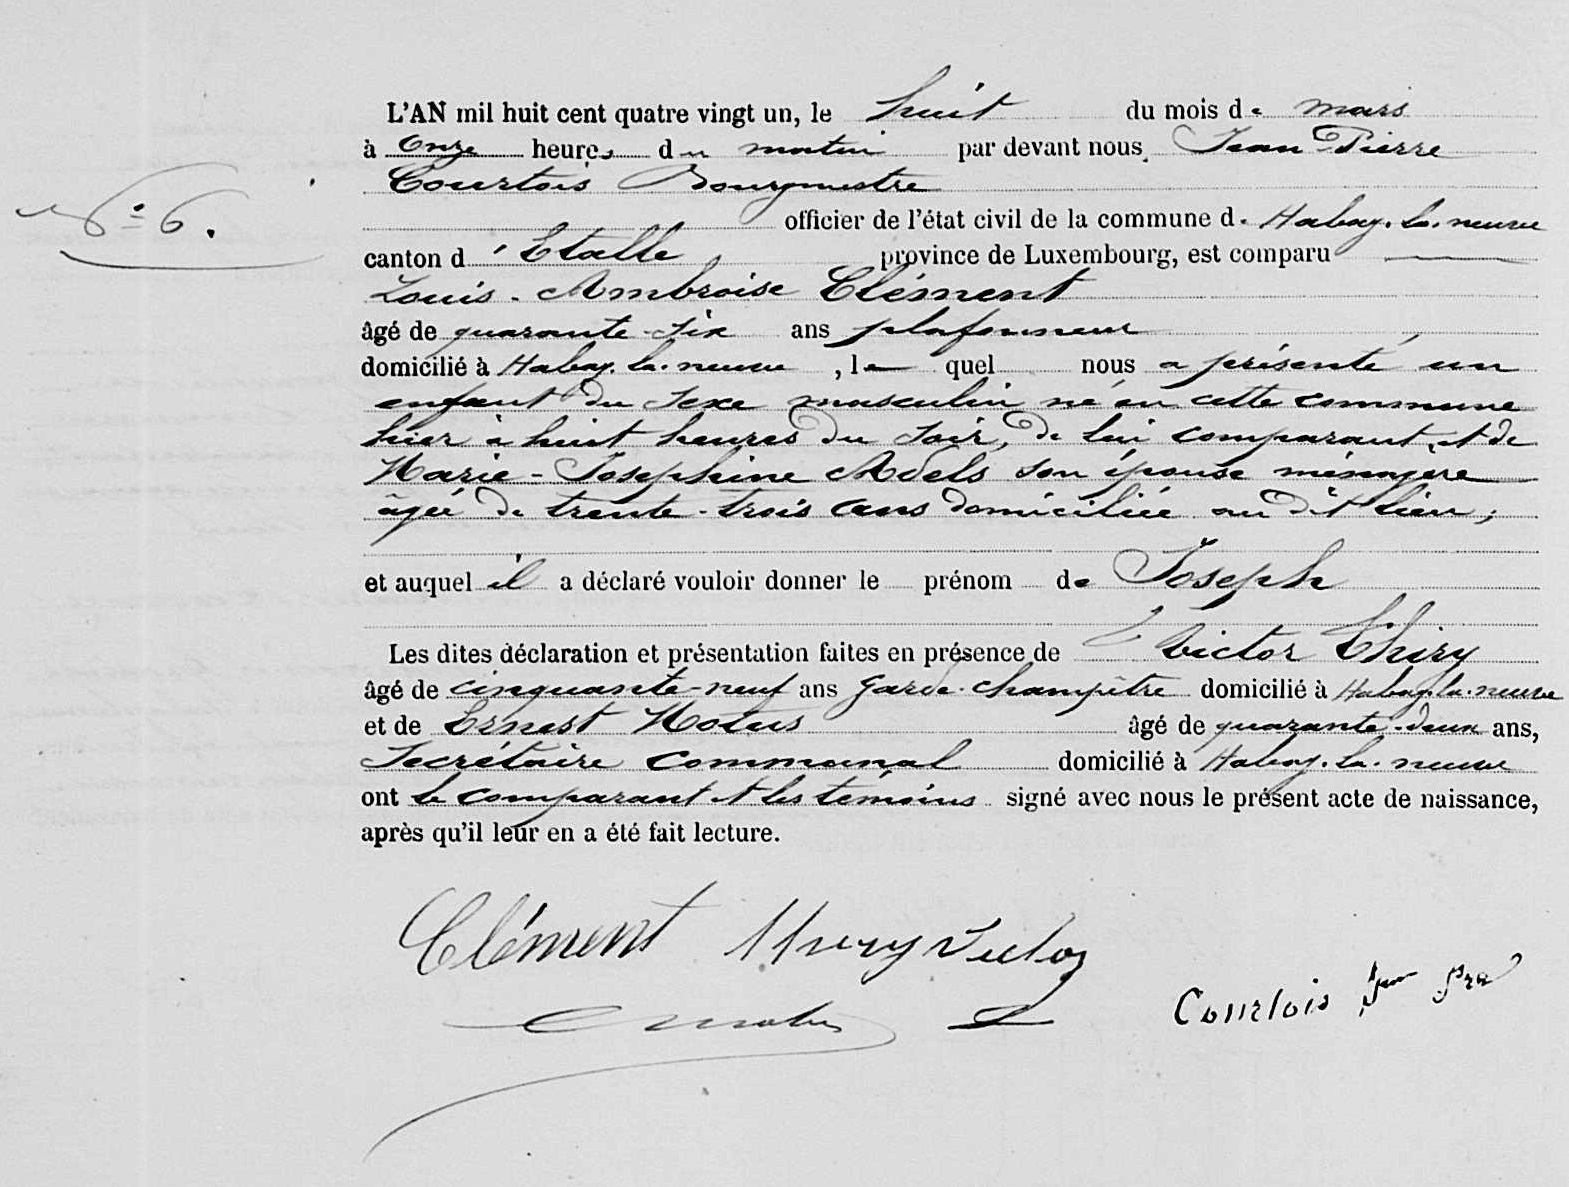 L'AN mil huit cent quatre vingt un, le huit du mois de mars
à Onze heures du matin par devant nous, Jean-Pierre
Courtois Bourgmestre
N° 6.
officier de l'état civil de la commune de Habay-la-neuve
canton d'Etalle, province de Luxembourg, est comparu
Louis-Ambroise Clément
âgé de quarante-six ans plafonneur
domicilié à Habay-la-neuve, le quel nous a présenté un
enfant du sexe masculin né en cette commune
hier à huit heures du soir, de lui comparant et de
Marie-Josephine Adels son épouse ménagère
âgée de trente-trois ans domiciliée au dit lieu;
et auquel il a déclaré vouloir donner le prénom de Joseph
Les dites déclaration et présentation faites en présence de Victor Thiry
âgé de cinquante-neuf ans garde-champêtre domicilié à Habay-la-neuve
et de Ernest âgé de quarante-deux ans,
Secrétaire Communal domicilié à Habay-la-neuve
ont le comparant et les témoins signé avec nous le présent acte de naissance,
après qu'il leur en a été fait lecture.
Clément Thiry Victor
Courtois Jean Pre